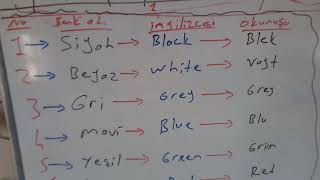 No Renk adı İngilizcesi Okunuşu
1 → Siyah → Black → Blek
2 → Beyaz → White → Voyt
3 → Gri → Grey → Grey
4 → Mavi → Blue → Blu
5 → Yeşil → Green → Griin
Red